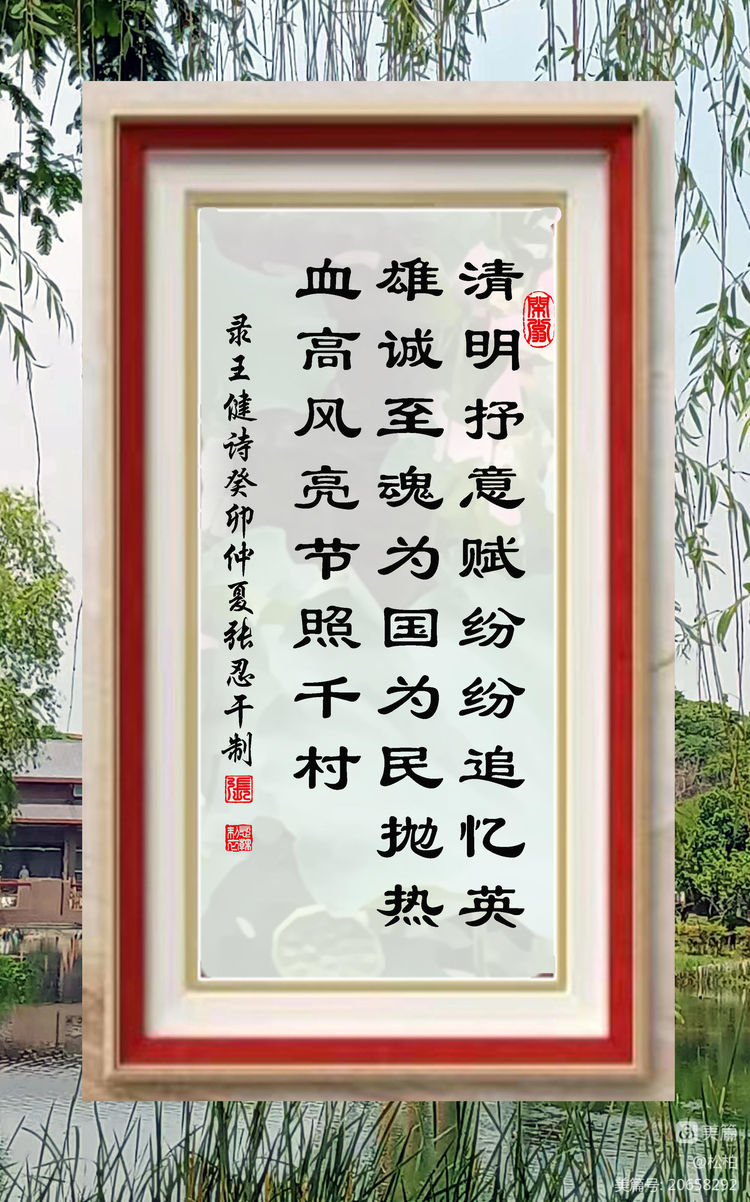 清明抒意赋纷纷追忆英
雄诚至魂为国为民抛热
血高风亮节照千村
录王健诗癸卯仲夏张忍干制
張
美篇
@松柏
美篇号: 20658292